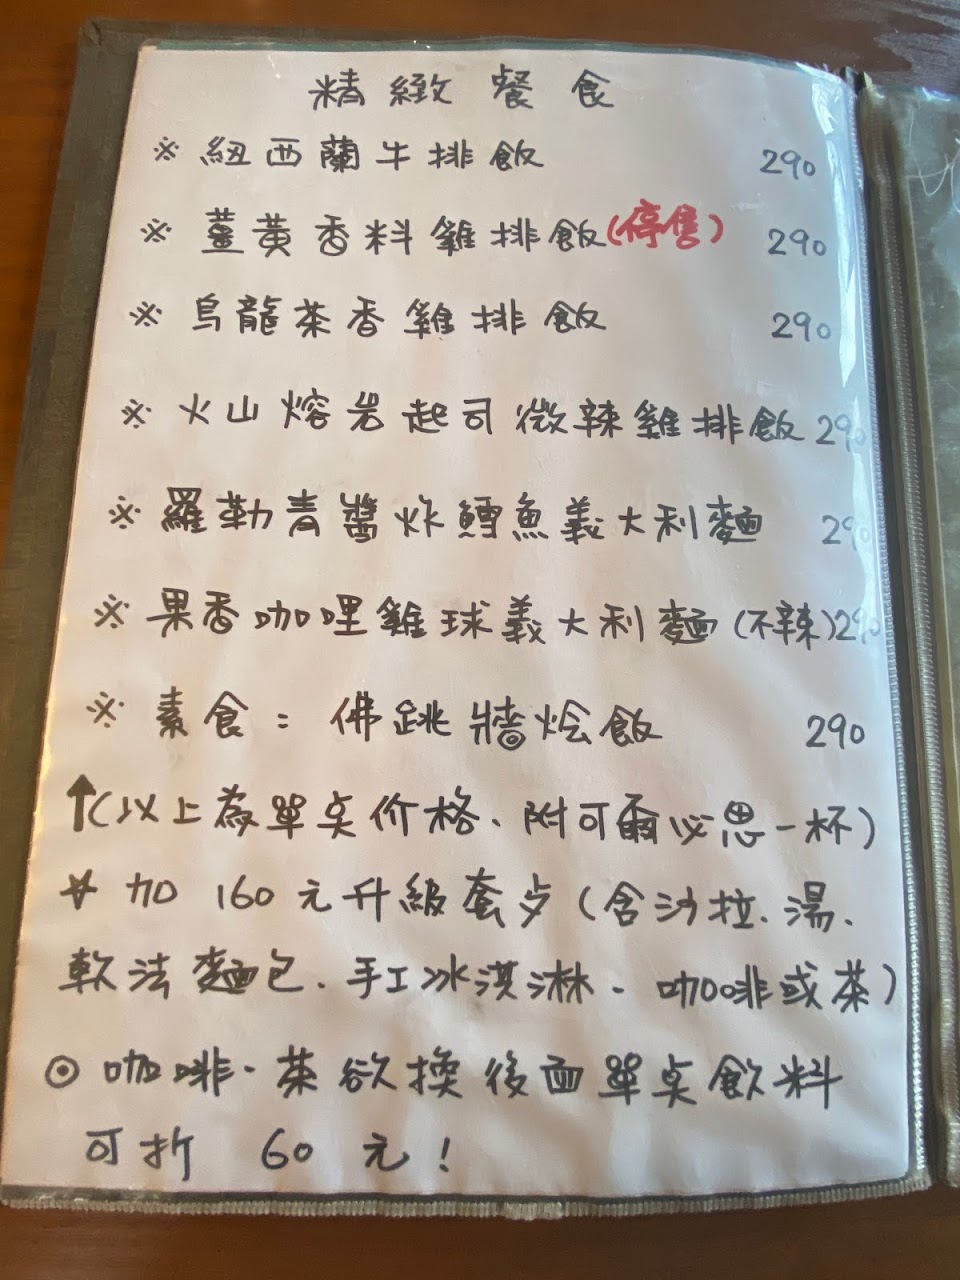 精緻餐食
※ 紐西蘭牛排飯 290
※ 薑黃香料雞排飯(停售) 290
※ 烏龍茶香雞排飯 290
※ 火山熔岩起司微辣雞排飯 290
※ 羅勒青醬炸鱈魚義大利麵 290
※ 果香咖哩雞球義大利麵(不辣) 290
※ 素食：佛跳牆烩飯 290
↑(以上為單点价格、附可爾必思一杯)
☆ 加 160 元升級套歺(含沙拉、湯、
軟法麵包、手工冰淇淋、咖啡或茶)
◎ 咖啡、茶欲換後面單点飲料
可折 60 元！